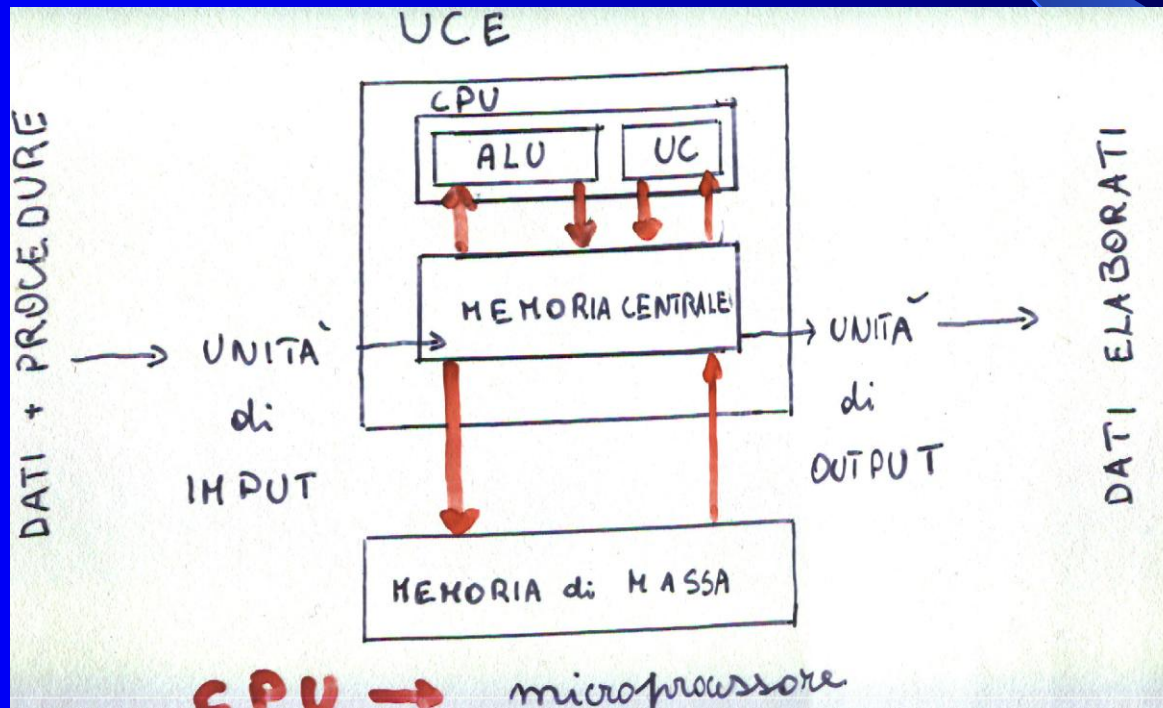 UCE
CPU
ALU
UC
MEMORIA CENTRALE
DATI + PROCEDURE
UNITÀ
di
IMPUT
UNITÀ
di
OUTPUT
DATI ELABORATI
MEMORIA di MASSA
CPU → microprocessore